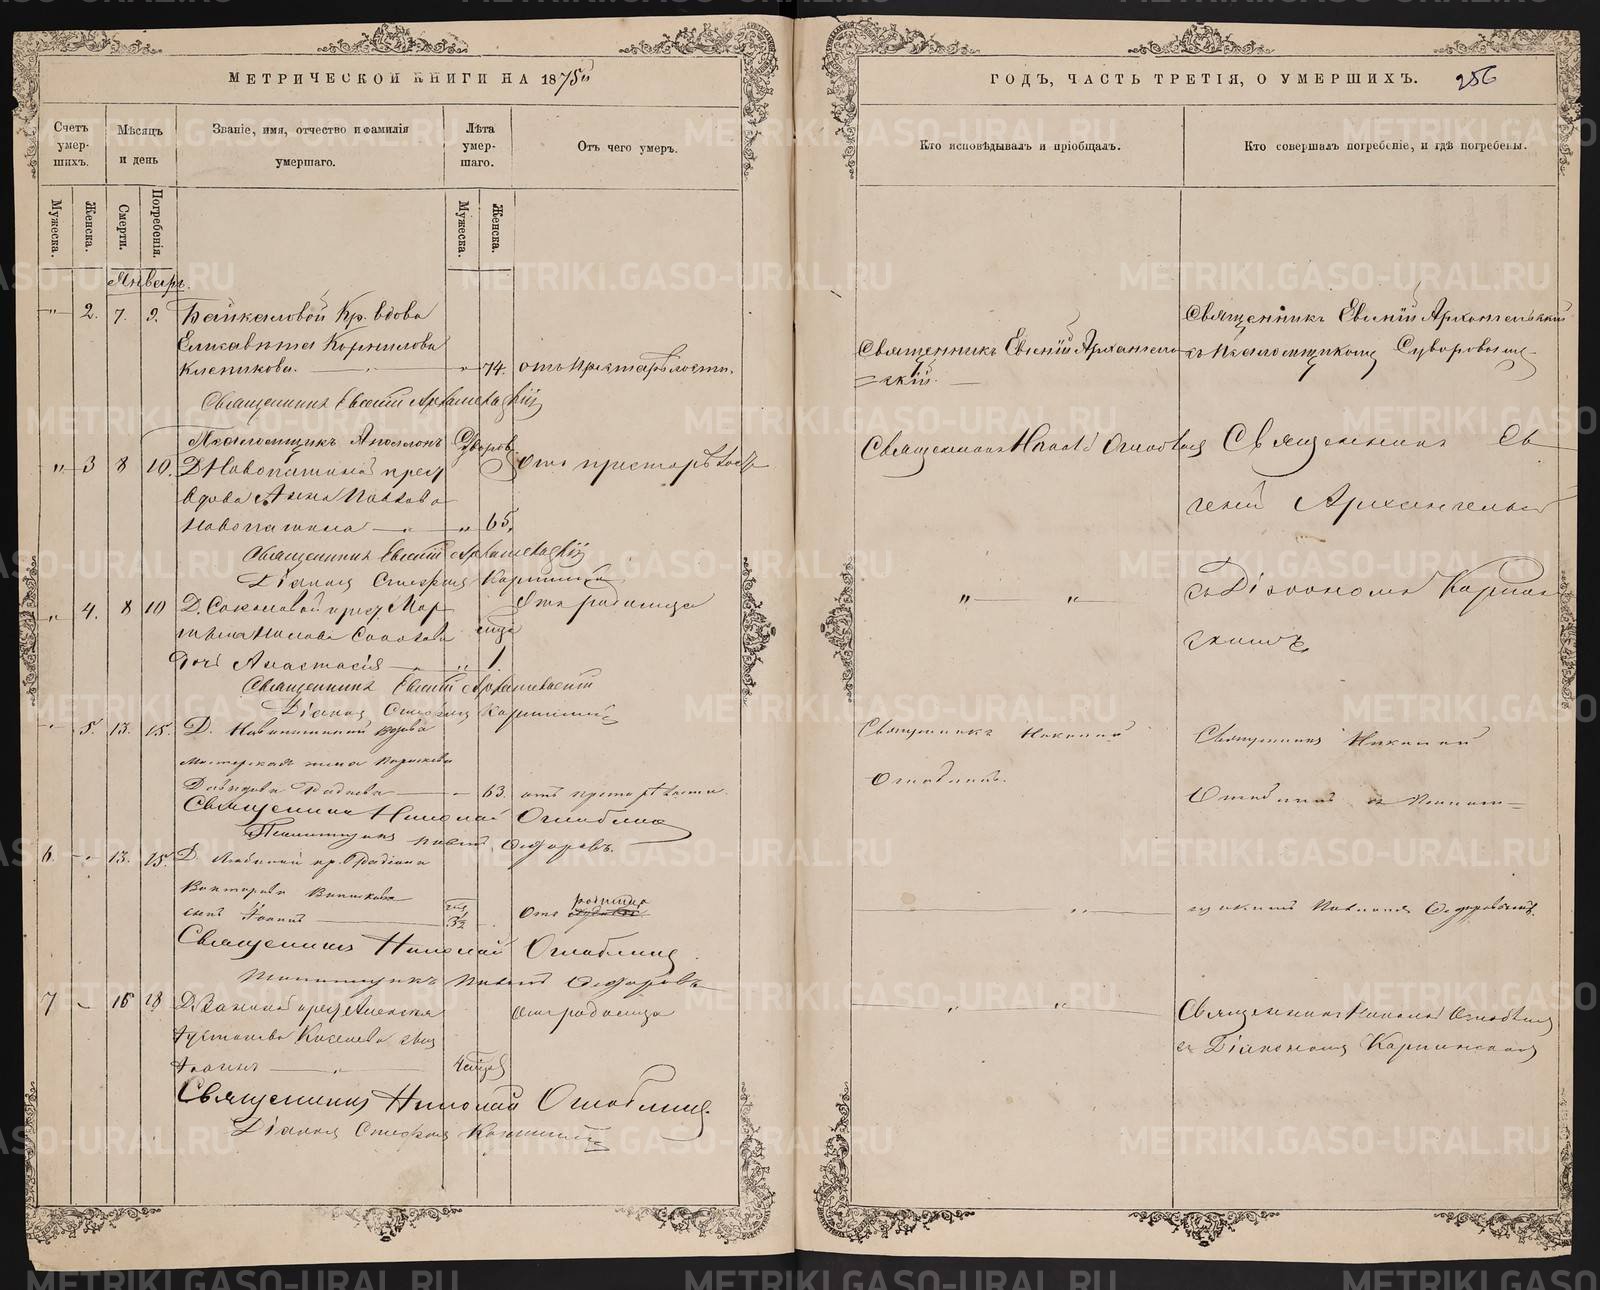 МЕТРИЧЕСКОЙ КНИГИ НА 1875
Счетъ умер-шихъ.
Мѣсяцъ и день
Званіе, имя, отчество и фамилія умершаго.
Лѣта умер-шаго.
Отъ чего умеръ.
Мужеска.
Женска.
Смерти.
Погребенія.
Мужеска.
Женска.
Январь.
" 2. 7. 9. Байкаловой Кр. вдова
Елисавета Корнилова
" 74. отъ престарѣлости.
Священникъ Евгеній Архангельскій
Псаломщикъ Аполлонъ Суворовъ
" 3 8 10. Д. Новопашиной
вдова Анна Павлова
Новопашина " 65.
отъ престарѣлости
Священникъ Евгеній Архангельскій
Діаконъ Стефанъ Карпинскій
" 4. 8 10 Д. Соколовой крест.
Отъ родимца
дочь Анастасія " 1.
Священникъ Евгеній Архангельскій
Діаконъ Стефанъ Карпинскій
" 5. 13. 15. Д. вдова
63. отъ престарѣлости.
Священникъ Николай Оглоблинъ
Псаломщикъ Павелъ Ѳедоровъ.
6. " 13. 15. Д. кр. Родіона
Викторова
сынъ Іоаннъ 3½
Отъ родимца
Священникъ Николай Оглоблинъ
Псаломщикъ Павелъ Ѳедоровъ
7 16 18 Д. крест. Алексѣя
сынъ
Іоаннъ
отъ родимца
Священникъ Николай Оглоблинъ.
Діаконъ Стефанъ Карпинскій
ГОДЪ, ЧАСТЬ ТРЕТІЯ, О УМЕРШИХЪ. 256
Кто исповѣдывалъ и пріобщалъ.
Кто совершалъ погребеніе, и гдѣ погребены.
Священникъ Евгеній Архангель-
скій.
Священникъ Евгеній Архангельскій
съ Псаломщикомъ Суворовымъ
Священникъ Николай Оглоблинъ
Священникъ Ев-
геній Архангельскій
" "
съ Діакономъ Карпин-
скимъ
Священникъ Николай
Оглоблинъ.
Священникъ Николай
Оглоблинъ съ Псалом-
"
щикомъ Павломъ Ѳедоровымъ.
" "
Священникъ Николай Оглоблинъ
съ Діакономъ Карпинскимъ
METRIKI.GASO-URAL.RU